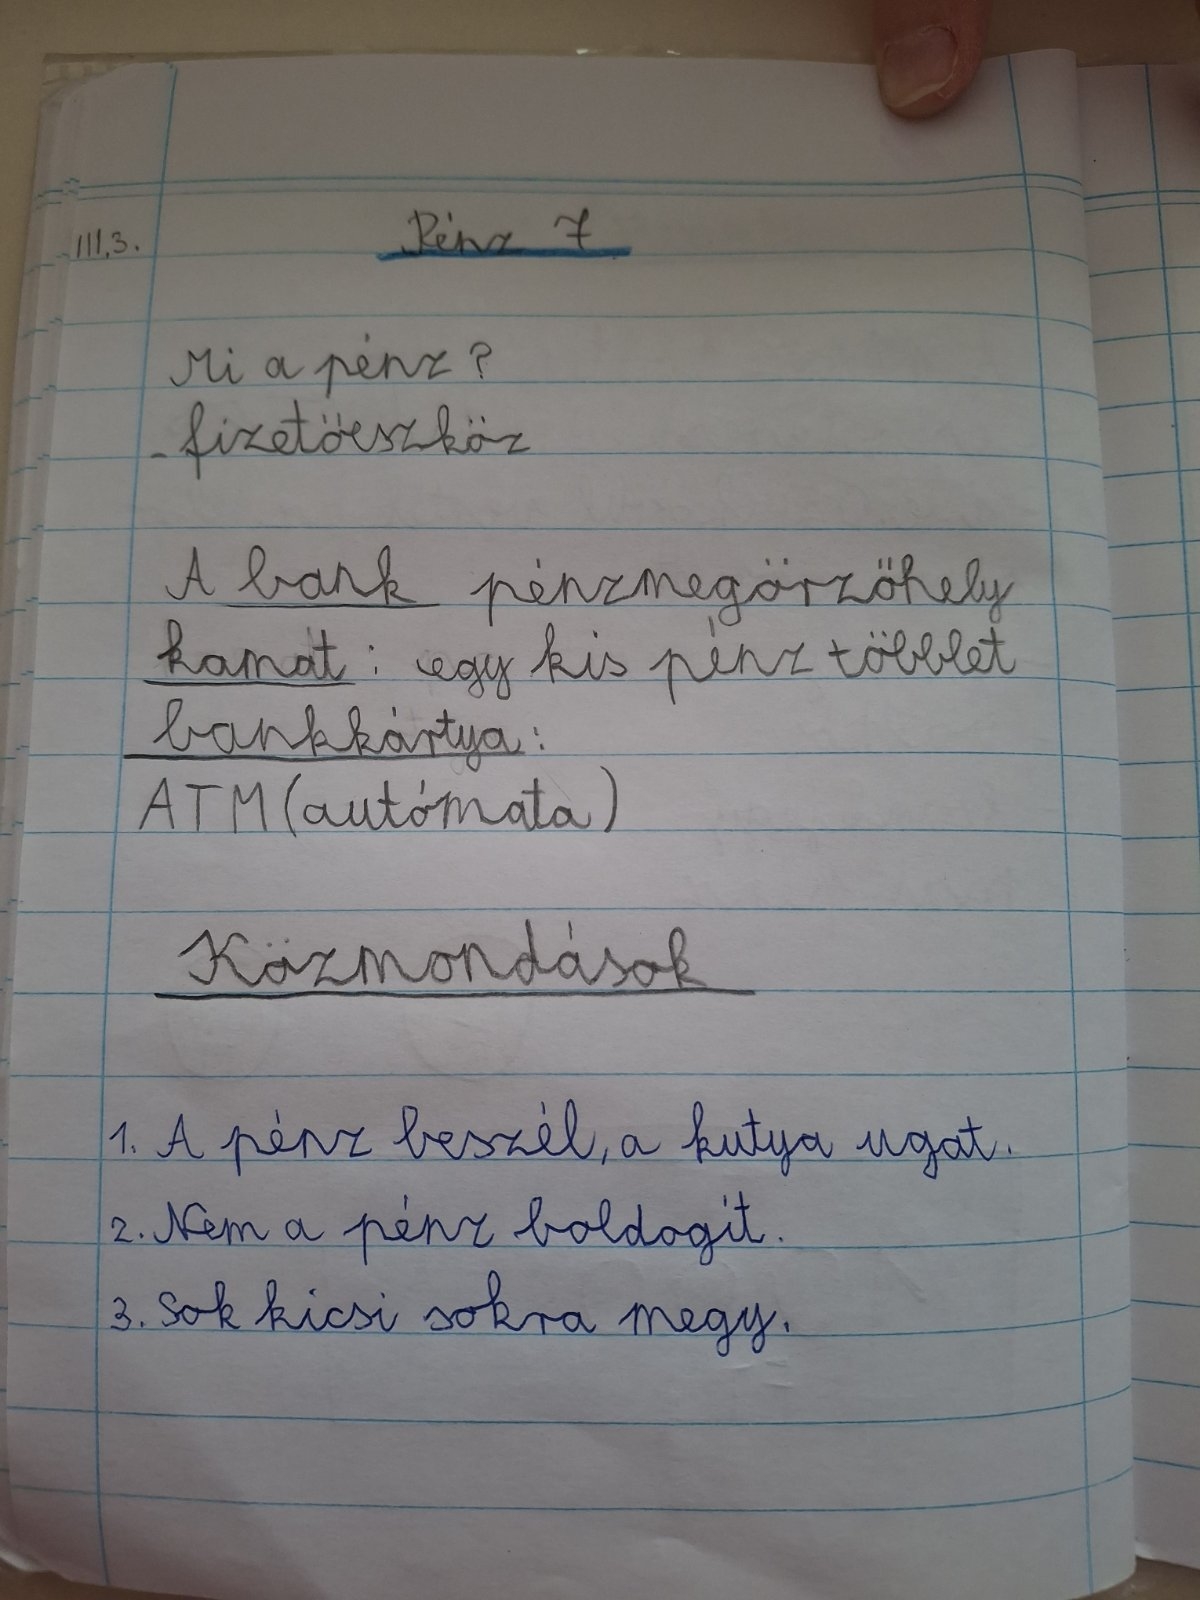 III.3.
Pénz 7
Mi a pénz?
- fizetőeszköz
A bank pénzmegőrzőhely
kamat: egy kis pénz többlet
bankkártya:
ATM (autómata)
Közmondások
1. A pénz beszél, a kutya ugat.
2. Nem a pénz boldogít.
3. Sok kicsi sokra megy.